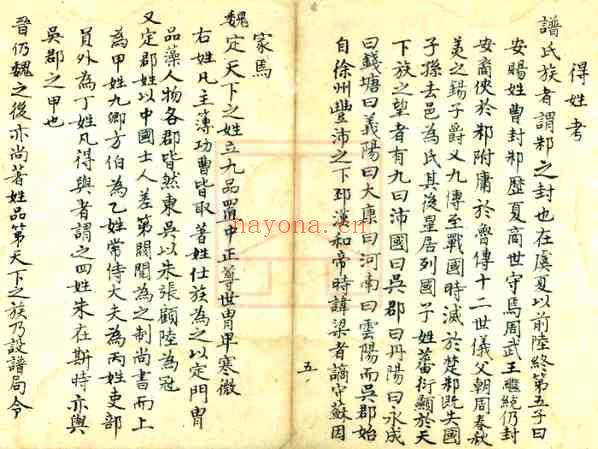 得姓考
譜氏族者謂邾之封也在虞夏以前陸終第五子曰
安賜姓曹封邾歷夏商世守焉周武王繼統仍封
安裔俠於邾附庸於魯傳十二世儀父朝周春秋
美之錫子爵又九傳至戰國時滅於楚邾既失國
子孫去邑為氏其後星居列國子姓蕃衍顯於天
下族之望者有九曰沛國曰吳郡曰丹陽曰永成
曰錢塘曰義陽曰太康曰河南曰雲陽而吳郡始
自徐州豐沛之下邳漢和帝時諱梁者謫守蘇因
五
家焉
魏定天下之姓立九品置中正尊世胄卑寒微
右姓凡主簿功曹皆取著姓仕族為之以定門胄
品藻人物各郡皆然東吳以朱張顧陸為冠
又定郡姓以中國士人差第閥閱為之制尚書而上
為甲姓九卿方伯為乙姓常侍大夫為丙姓吏部
員外為丁姓凡得與者謂之四姓朱在斯時亦與
吳郡之甲也
晉仍魏之後亦尚著姓品第天下之族乃設譜局令
nayona.cn